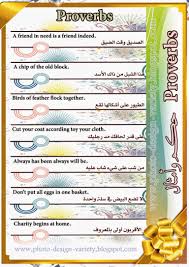 Proverbs
A friend in need is a friend indeed.
الصديق وقت الضيق
A chip of the old block.
هذا الشبل من ذاك الأسد
Birds of feather flock together.
الطيور على أشكالها تقع
Cut your coat according to your cloth.
على قدر لحافك مد رجليك
Always has been always will be.
من شب على شيء شاب عليه
Don't put all eggs in one basket.
لا تضع البيض في سلة واحدة
Charity begins at home.
الأقربون أولى بالمعروف
Proverbs
حكم وأمثال
www.photo-design-variety.blogspot.com